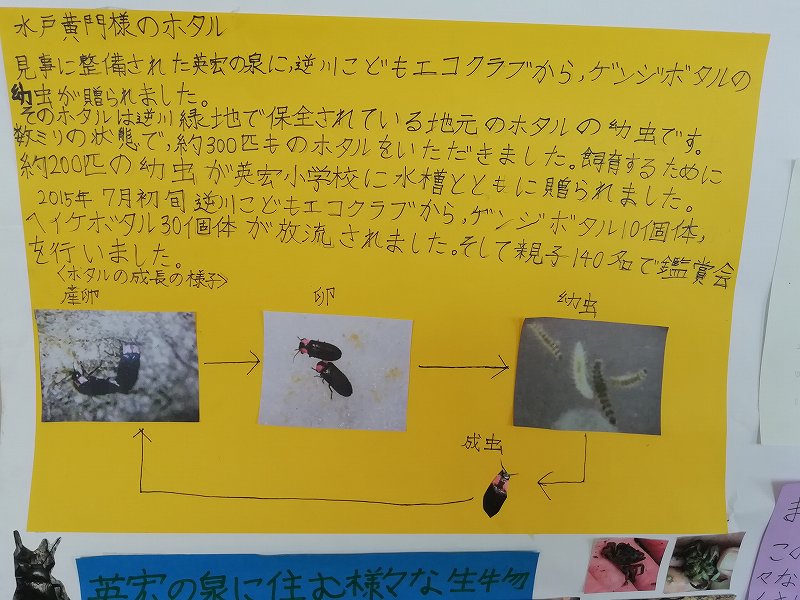 水戸黄門様のホタル
見事に整備された英宏の泉に,逆川こどもエコクラブから,ゲンジボタルの
幼虫が贈られました。
そのホタルは逆川緑地で保全されている地元のホタルの幼虫です。
数ミリの状態で,約300匹ものホタルをいただきました。飼育するために
約200匹の幼虫が英宏小学校に水槽とともに贈られました。
2015年7月初旬逆川こどもエコクラブから,ゲンジボタル10個体,
ヘイケボタル30個体が放流されました。そして親子140名で鑑賞会
を行いました。
〈ホタルの成長の様子〉
産卵
卵
幼虫
成虫
英宏の泉に住む様々な生物
ま
この
々な